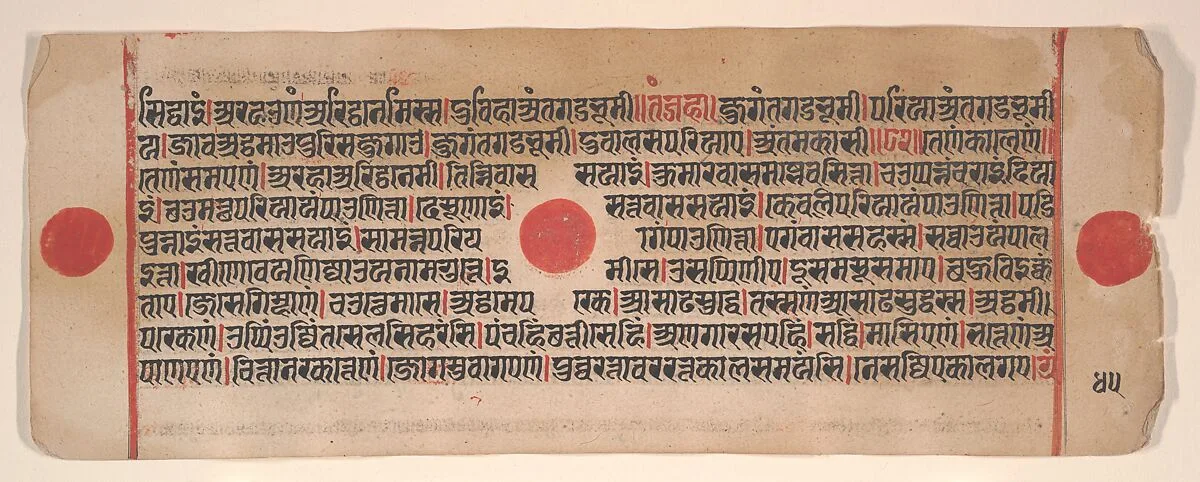 सिद्धाइं।अरहउणंअरिट्ठनेमिस्स।दुविहाअंतगडभूमी॥तंजहा॥जुगंतगडभूमी।परिआअंतगडभूमी
य।जावअट्ठमाउपुरिसजुगाउ।जुगंतगडभूमी।दुवालसपरिआए।अंतमकासी॥ तेणंकालेणं॥
तेणंसमएणं।अरहाअरिट्ठनेमी।तिन्निवास सयाइं।कुमारवासमज्झेवसित्ता।चउप्पन्नंचराइंदिया
इं।छउमत्थपरिआयंपाउणित्ता।देसूणाइं। सत्तवाससयाइं।केवलिपरिआयंपाउणित्ता।पडि
पुन्नाइंसत्तवाससयाइं।सामन्नपरिय ागंपाउणित्ता।एगंवाससहस्सं।सव्वाउअंपाल
इत्ता।खीणेवेअणिज्जाउअनामगुत्ते।इ मीसे।उसप्पिणीए।दूसमसूसमाए।बहुविइक्कं
ताए।जेसेगिम्हाणं।चउत्थेमासे।अट्ठमेप क्खे।आसाढसुद्धे।तस्सणंआसाढसुद्धस्स।अट्ठमी।
पक्खेणं।उप्पिंउज्जिंतसेलसिहरंसि।पंचहिंछत्तीसेहिं।अणगारसएहिं।सद्धिं।मासिएणं।भत्तेणंअ
पाणएणं।चित्तानक्खत्तेणं।जोगमुवागएणं।पुव्वरत्तावरत्तकालसमयंसि।नेसज्जिएकालगए।ग्रं
४५